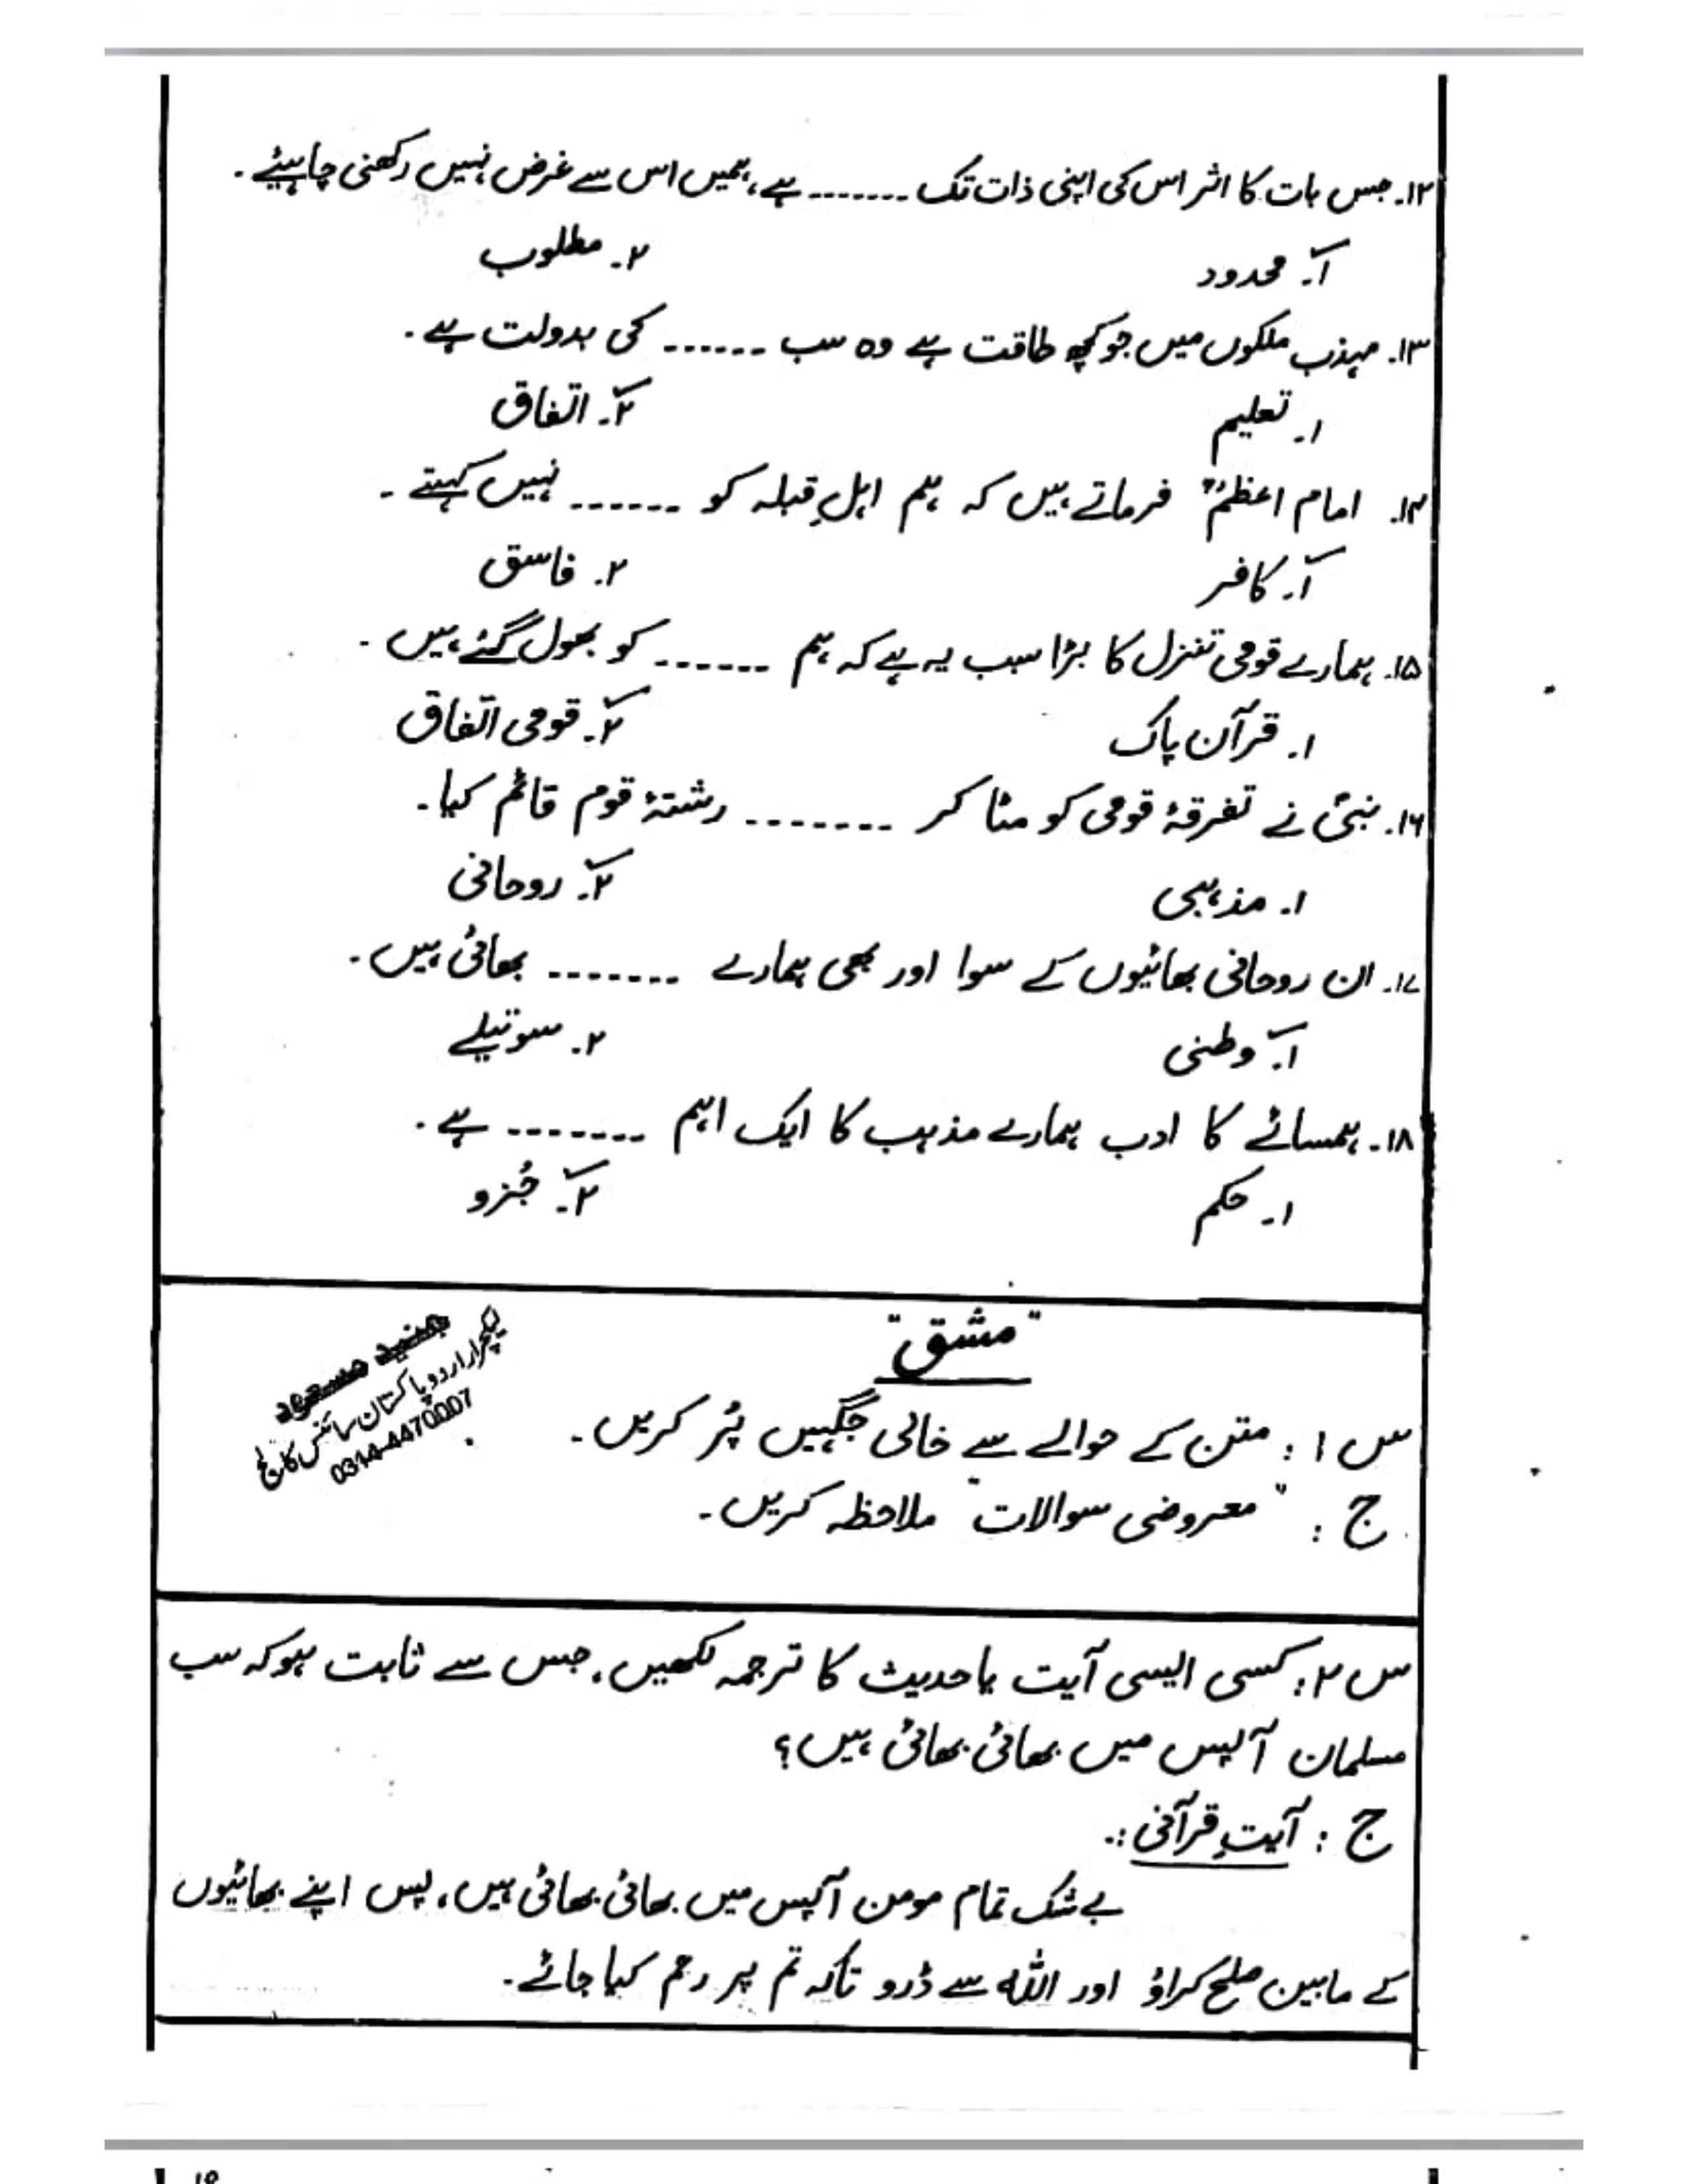 ۱۲۔ جس بات کا اثر اس کی اپنی ذات تک ------- ہے، ہمیں اس سے غرض نہیں رکھنی چاہیئے۔
۱۔ محدود ۲۔ مطلوب
۱۳۔ مہذب ملکوں میں جو کچھ طاقت ہے وہ سب ------ کی بدولت ہے۔
۱۔ تعلیم ۲۔ اتفاق
۱۴۔ امام اعظمؒ فرماتے ہیں کہ ہم اہلِ قبلہ کو ------ نہیں کہتے۔
۱۔ کافر ۲۔ فاسق
۱۵۔ ہمارے قومی تنزل کا بڑا سبب یہ ہے کہ ہم ------ کو بھول گئے ہیں۔
۱۔ قرآن پاک ۲۔ قومی اتفاق
۱۶۔ نبیؐ نے تفرقۂ قومی کو مٹا کر ------- رشتۂ قوم قائم کیا۔
۱۔ مذہبی ۲۔ روحانی
۱۷۔ ان روحانی بھائیوں کے سوا اور بھی ہمارے ------- بھائی ہیں۔
۱۔ وطنی ۲۔ سوتیلے
۱۸۔ ہمسائے کا ادب ہمارے مذہب کا ایک اہم ------- ہے۔
۱۔ حکم ۲۔ جُزو
"مشق"
جنید مسعود
لیکچرار اردو پاکستان سائنس کالج
0314-4470007
س ۱: متن کے حوالے سے خالی جگہیں پُر کریں۔
ج: "معروضی سوالات" ملاحظہ کریں۔
س ۲: کسی ایسی آیت یا حدیث کا ترجمہ لکھیں، جس سے ثابت ہو کہ سب
مسلمان آپس میں بھائی بھائی ہیں؟
ج: آیتِ قرآنی:۔
بے شک تمام مومن آپس میں بھائی بھائی ہیں، پس اپنے بھائیوں
کے مابین صلح کراؤ اور اللہ سے ڈرو تاکہ تم پر رحم کیا جائے۔